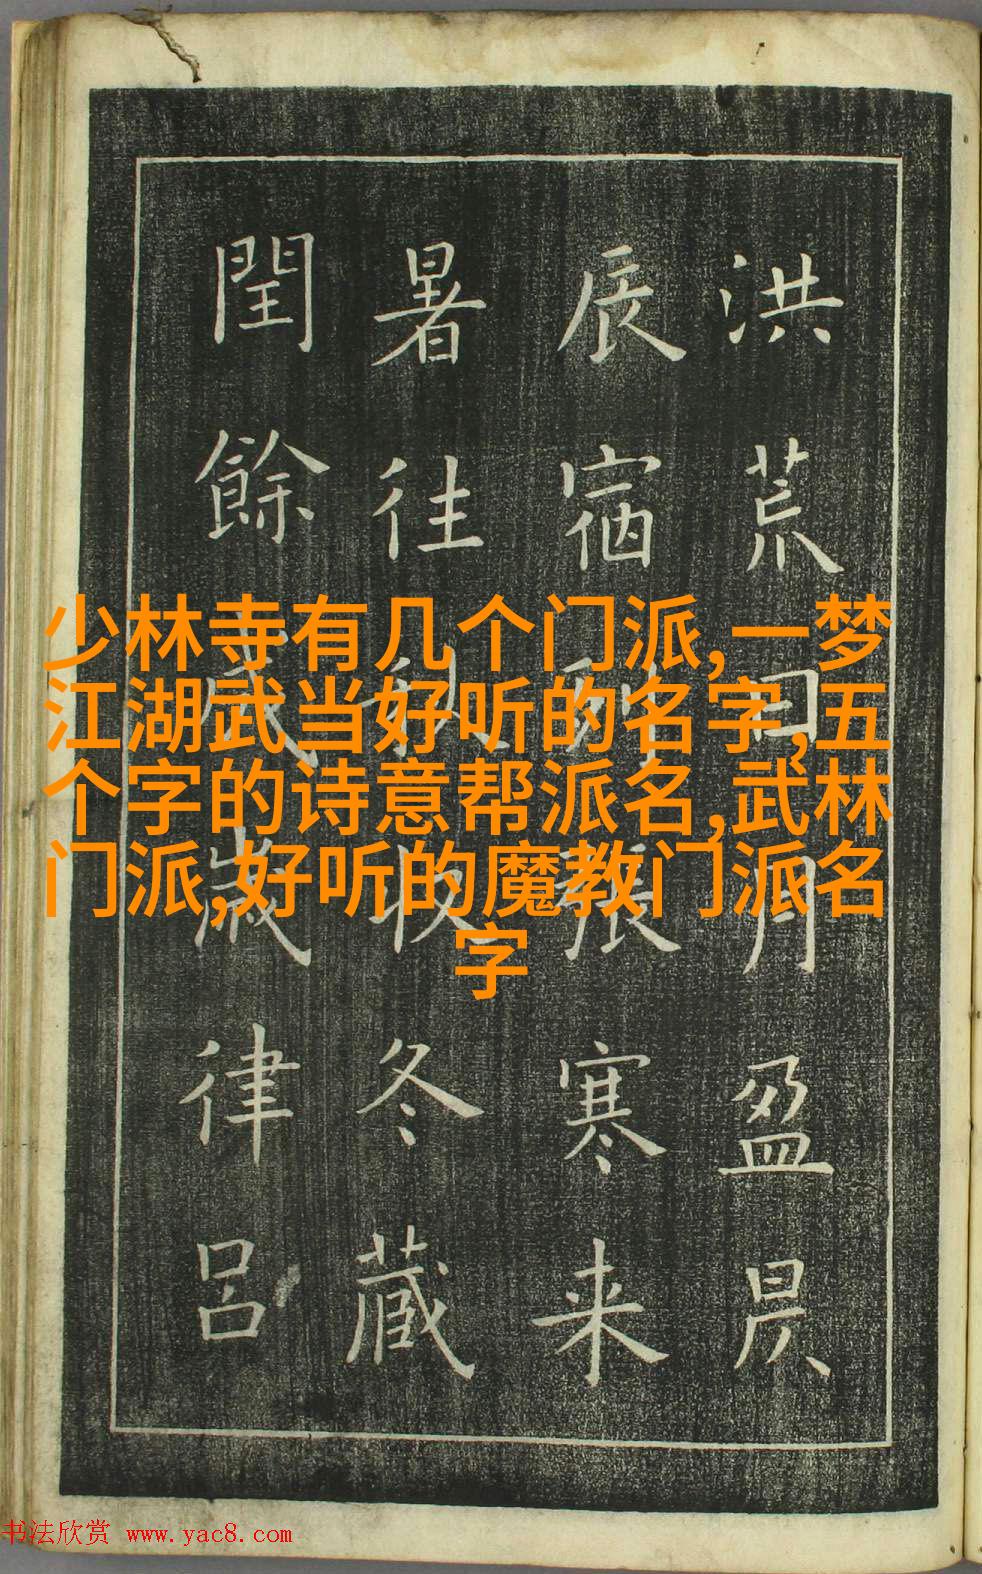 洪荒日月盈昃
辰宿列張寒来
暑往秋收冬藏
閏餘成歲律呂
少林寺有几个门派,一梦
江湖武当好听的名字,五
个字的诗意帮派名,武林
门派,好听的魔教门派名
字
书法欣赏 www.yac8.com